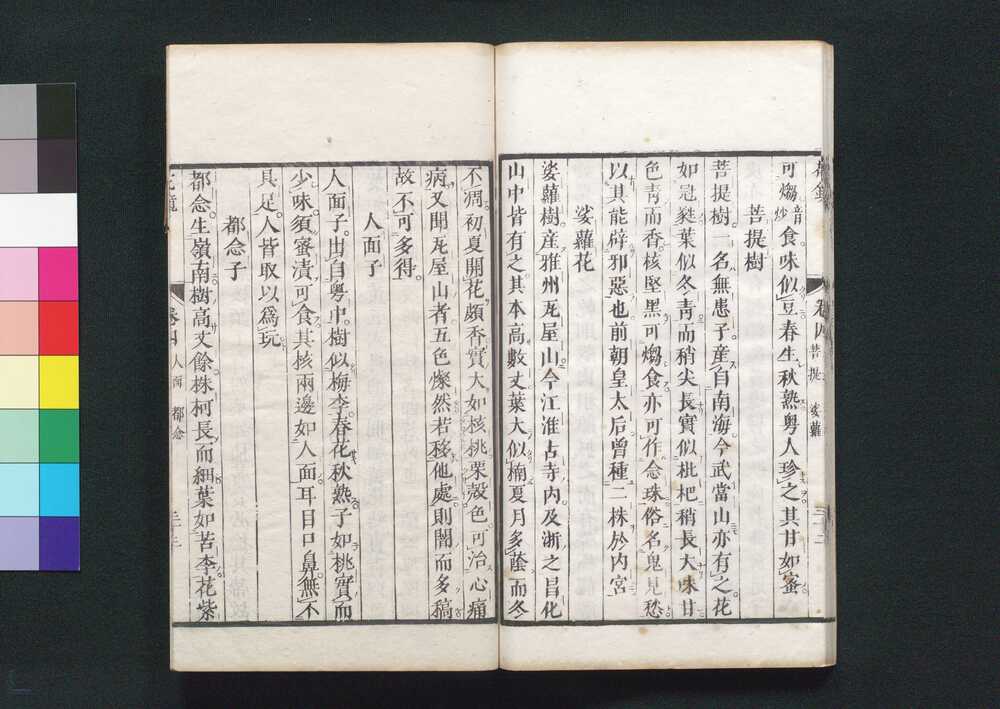 可煼音炒食味似豆春生秋熟粤人珍之其甘如蜜
菩提樹
菩提樹一名無患子産自南海今武當山亦有之花
如冠蕤葉似冬青而稍尖長實似枇杷稍長大味甘
色青而香核堅黑可煼食亦可作念珠俗名鬼見愁
以其能辟邪惡也前朝皇太后曾種二株於内宮
娑蘿花
娑蘿樹産雅州瓦屋山今江淮古寺内及浙之昌化
山中皆有之其本高數丈葉大似楠夏月多蔭而冬
卷四 菩提 娑蘿 三十二
不凋初夏開花頗香實大如核桃栗殼色可治心痛
病又聞瓦屋山者五色燦然若移他處則闇而多稿
故不可多得
人面子
人面子出自粤中樹似梅李春花秋熟子如桃實而
少味須蜜漬可食其核兩邊如人面耳目口鼻無不
具足人皆取以爲玩
都念子
都念生嶺南樹高丈餘株柯長而細葉如苦李花紫
卷四 人面 都念